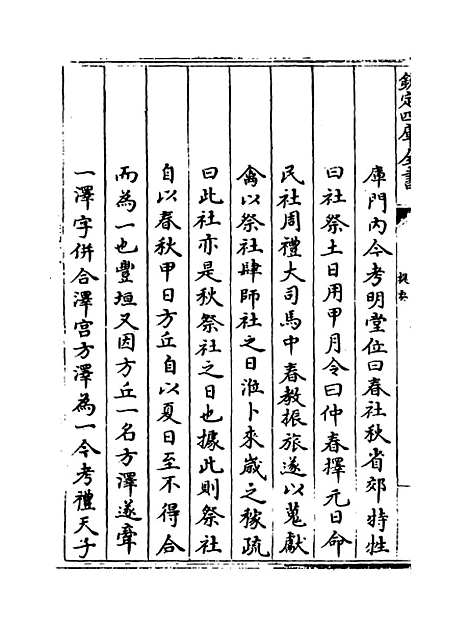 欽定四庫全書
提要
庫門内今考明堂位曰春社秋省郊特牲
曰社祭土日用甲月令曰仲春擇元日命
民社周禮大司馬中春教振旅遂以蒐獻
禽以祭社肆師社之日涖卜來歲之稼疏
曰此社亦是秋祭社之日也據此則祭社
自以春秋甲日方丘自以夏日至不得合
而為一也豐垣又因方丘一名方澤遂牽
一澤字併合澤宫方澤為一今考禮天子